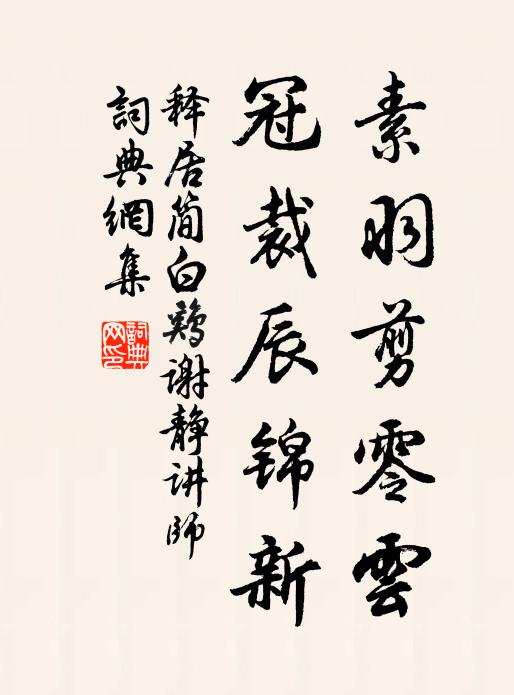 素羽剪零雲
冠裁辰锦新
释居简白鶏谢静讲师
詞典網集
詞典网印